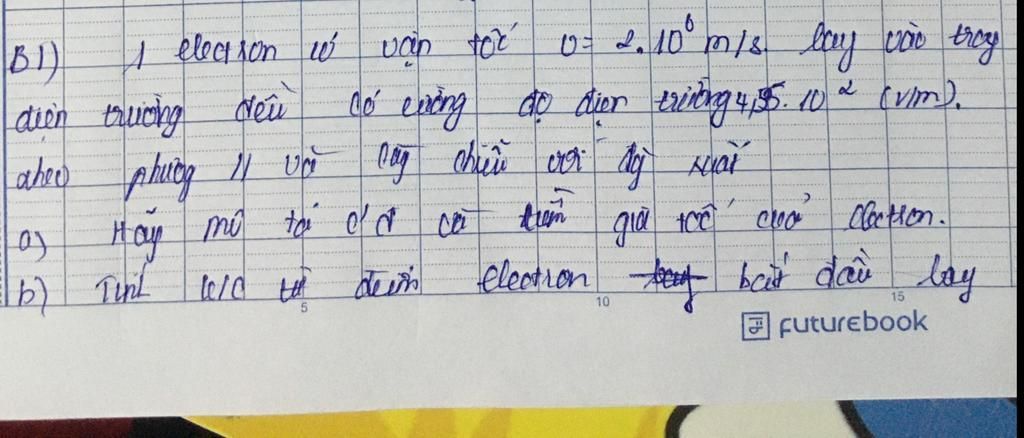 B1) 1 electron có vận tốc v = 2.10⁶ m/s bay vào trog
điện trường đều có cường độ điện trường 4,55.10² (V/m).
theo phương // và cùg chiều với đg
a) Hãy mô tả c/đ và gia tốc của electron.
b) Tính k/c từ điểm electron bắt đầu bay
5 10 15
FUTUREBOOK